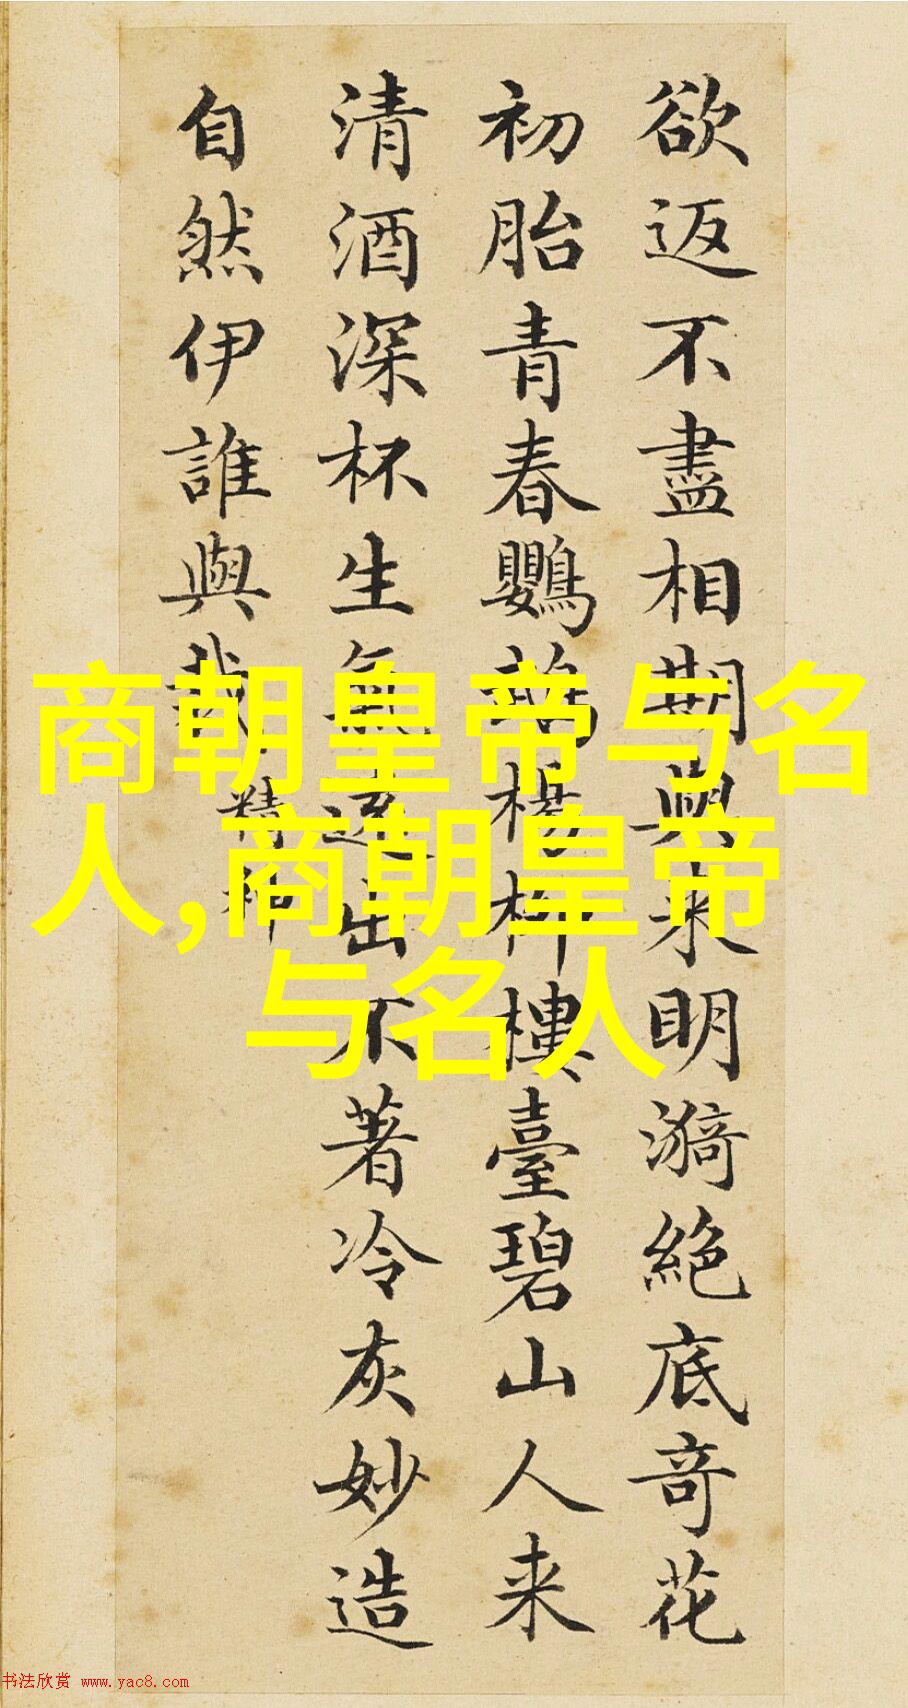 欲返不盡相期與来明漪絶底奇花
初胎青春鸚鵡楊柳樓臺碧山人来
清酒深杯生氣遠出不著冷灰妙造
自然伊誰與裁
精神
商朝皇帝与名
人,商朝皇帝
与名人
书法欣赏 www.yac8.com